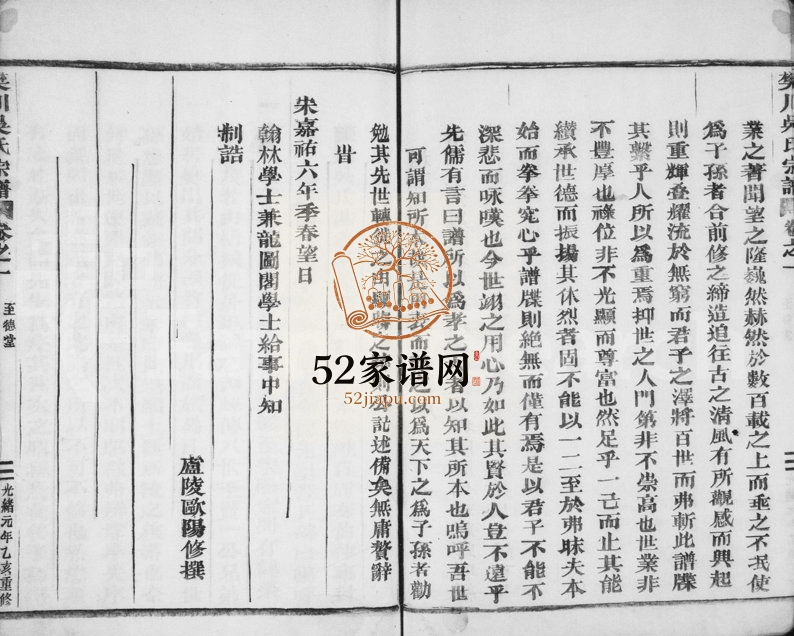 樊川吳氏宗譜 卷之一
業之著聞望之隆巍然赫然於數百載之上而垂之不泯使
爲子孫者合前修之締造追往古之清風有所觀感而興起
則重輝叠耀流於無窮而君子之澤將百世而弗斬此譜牒
其繫乎人所以爲重焉抑世之人門第非不崇高也世業非
不豐厚也祿位非不光顯而尊富也然足乎一己而止其能
纘承世德而振揚其休烈者固不能以一二至於弗昧夫本
始而拳拳究心乎譜牒則絶無而僅有焉是以君子不能不
深悲而咏嘆也今世翊之用心乃如此其賢於人豈不遠乎
先儒有言曰譜所以爲孝之 者以知其所本也嗚呼吾世
可謂知所本 是 者而 之以爲天下之爲子孫者勸
勉其先世轉徙之由 之 則公記述備矣無庸贅辭
旹
宋嘉祐六年季春望日
翰林學士兼龍圖閣學士給事中知
制誥
盧陵歐陽修撰
樊川吳氏宗譜 卷之一
至德堂
光緒元年乙亥重修
52家谱网
52jiapu.com